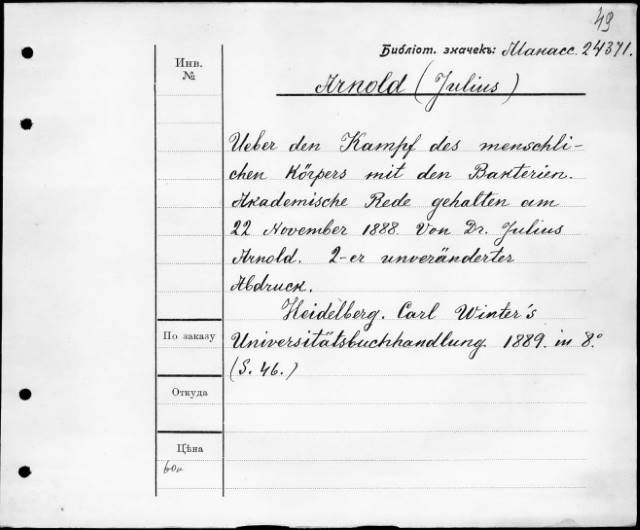 49
Библіот. значекъ: Манасс. 24371.
Инв.
№
Arnold (Julius)
Ueber den Kampf des menschli-
chen Körpers mit den Bakterien.
Akademische Rede gehalten am
22 November 1888. Von Dr. Julius
Arnold. 2-er unveränderter
Abdruck.
Heidelberg. Carl Winter's
Universitätsbuchhandlung. 1889. in 8.°
(S. 46.)
По заказу
Откуда
Цѣна